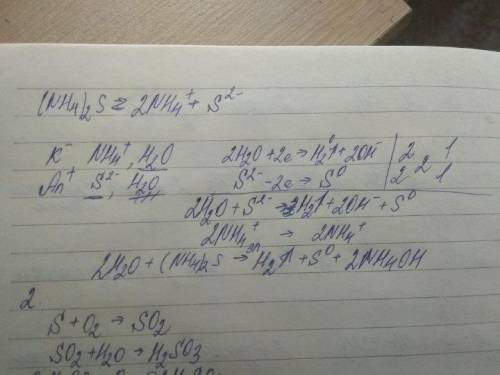 (NH4)2S ⇄ 2NH4+ + S2-
K- NH4+, H2O 2H2O + 2e → H2↑ + 2OH- | 2 | 1
An+ S2-, H2O S2- - 2e → S0 | 2 | 2 | 1
2H2O + S2- → H2↑ + 2OH- + S0
2NH4+ → 2NH4+
2H2O + (NH4)2S эл→ H2↑ + S0 + 2NH4OH
2
S + O2 → SO2
SO2 + H2O → H2SO3